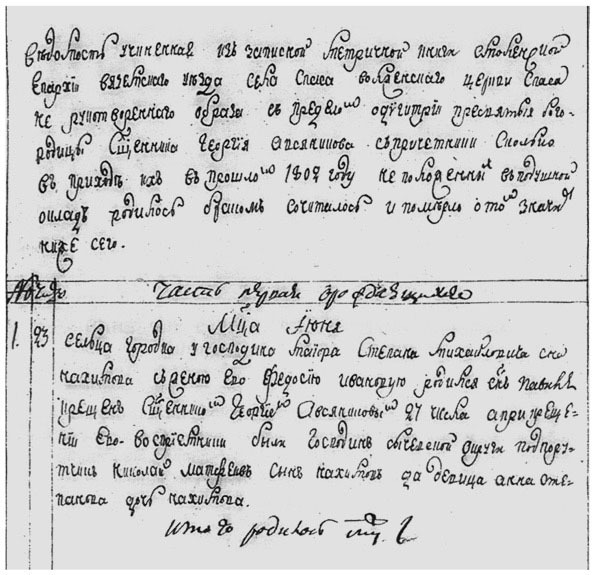 Ведомость учиненная изъ записной метричной книги Смоленской
Епархiи вяземскаго уезда села Спаса волженскаго церкви Спаса
не рукотвореннаго образа съ пределомъ одигитрiи пресвятыя бого-
родицы Священника Георгiя Овсянникова съ причетники сколько
въ приходѣ ихъ въ прошломъ 1802 году не положенныхъ въ подушной
окладъ родилось бракомъ сочиталось и померло о томъ значитъ
ниже сего.
№ число Часть первая о родившихся
Мца Июня
1. 23 Сельца городка у господина маiора Степана михайловича сна
нахимова съ женою его Федосiею ивановною родился снъ павелъ
крещенъ Священникомъ Георгiемъ Овсянниковымъ 27 числа а при креще-
нiи его воспрiемники были Господинъ подпору-
тчикъ николай матвеевъ сынъ нахимовъ да девица анна сте-
панова дочь нахимова.
Итого родилось